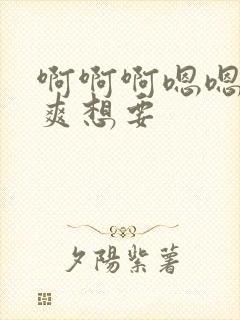 啊啊啊嗯嗯
爽想要
夕陽紫薯